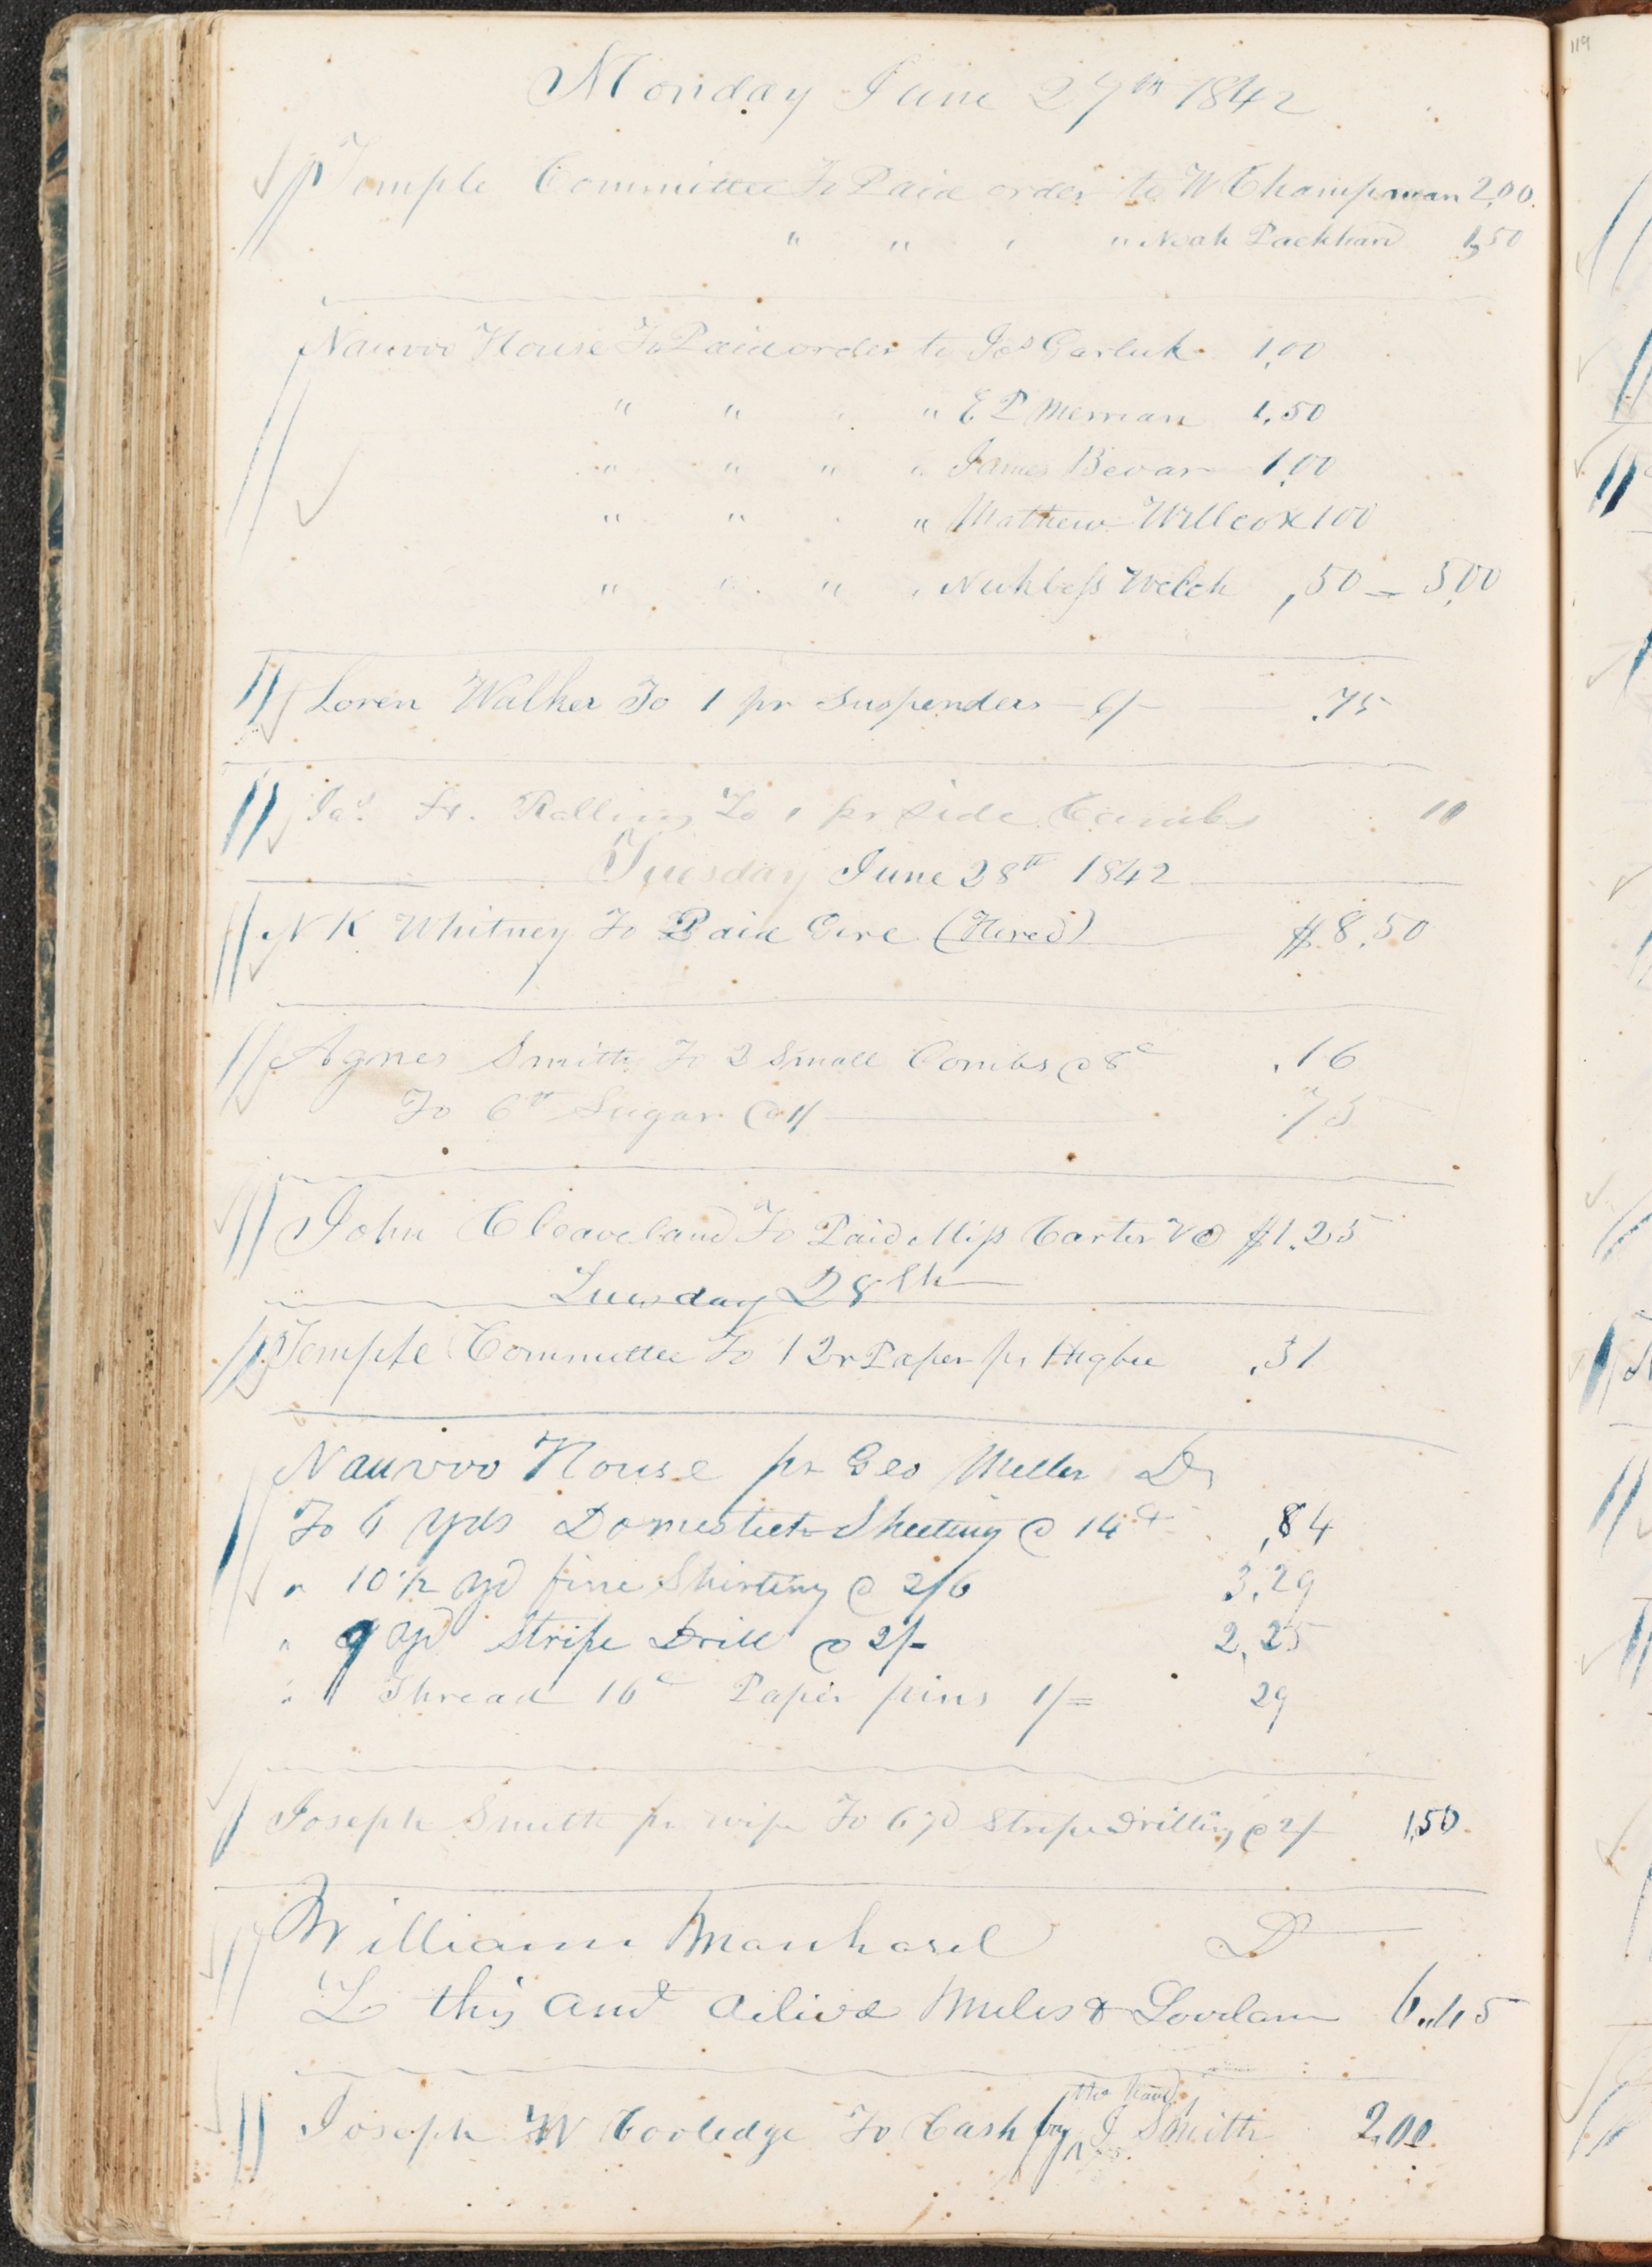 119
Monday June 27th 1842
Temple Committee To Paid order to W Champman 2,00
" " " " Noah Packhard 1,50
Nauvoo House To Paid order to Jos Garlick 1,00
" " " " E P Merriam 1,50
" " " " James Bevan 1,00
" " " " Mathew Willcox 100
" " " " Welch ,50 = 5,00
Loren Walker To 1 pr Suspenders 6/- .75
Jas. H. Rollins To 1 pr Side Combs 10
Tuesday June 28th 1842
N K Whitney To Paid (Hired) $8.50
Agnes Smith To 2 Small Combs @ 8c .16
To 6lb Sugar @ 1/ .75
John Cleaveland To Paid Miss Carter $1.25
Tuesday 28th
Temple Committee To 1 Qr Paper pr Higbee .31
Nauvoo House pr Geo Miller Dr
To 6 yds Domestick Sheeting @ 14c ,84
" 10 1/2 yd fine Shirting @ 2/6 3.29
" 9 yd Stripe Drill @ 2/- 2,25
" Thread 16c Paper pins 1/= 29
Joseph Smith pr wife To 6 yd Stripe Drilling @ 2/- 1,50
William Dr
To this amt Miles & 6..45
the hand
Joseph W Cooledge To Cash by J Smith 2,00